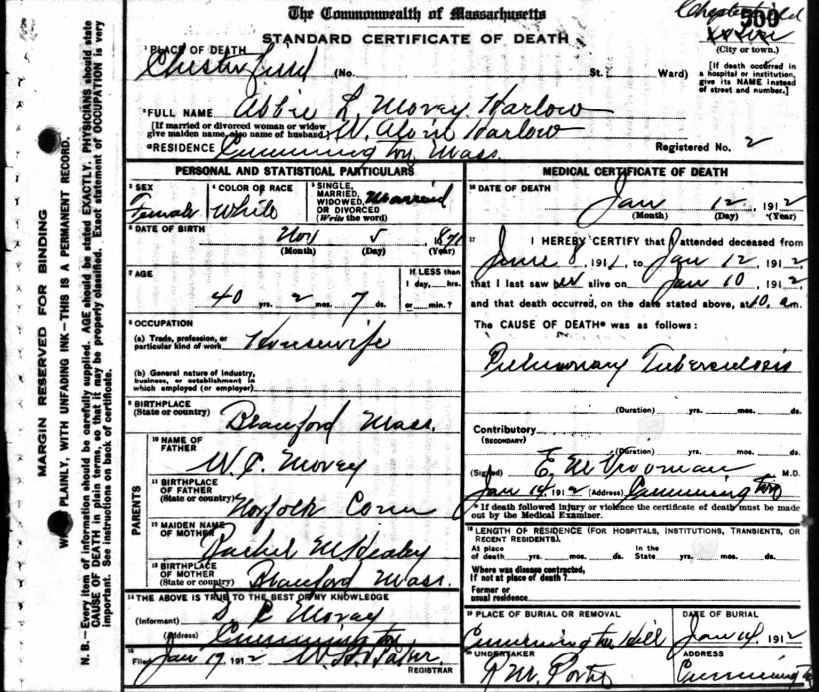 The Commonwealth of Massachusetts
STANDARD CERTIFICATE OF DEATH
500
Chesterfield
(City or town.)
1 PLACE OF DEATH
Chesterfield (No. St.; Ward)
[If death occurred in a hospital or institution, give its NAME instead of street and number.]
2 FULL NAME Abbie L. Morey Harlow
[If married or divorced woman or widow give maiden name, also name of husband.] W. Harlow
RESIDENCE Cummington Mass. Registered No. 2
PERSONAL AND STATISTICAL PARTICULARS
3 SEX
Female
4 COLOR OR RACE
White
5 SINGLE, MARRIED, WIDOWED, OR DIVORCED (Write the word)
Married
6 DATE OF BIRTH
Nov 5 1871
(Month) (Day) (Year)
7 AGE
40 yrs. 2 mos. 7 ds.
If LESS than 1 day, hrs. or min.?
8 OCCUPATION
(a) Trade, profession, or particular kind of work Housewife
(b) General nature of industry, business, or establishment in which employed (or employer)
9 BIRTHPLACE
(State or country) Mass.
PARENTS
10 NAME OF FATHER
W. C. Morey
11 BIRTHPLACE OF FATHER
(State or country) Norfolk Conn
12 MAIDEN NAME OF MOTHER
Rachel
13 BIRTHPLACE OF MOTHER
(State or country) Mass.
14 THE ABOVE IS TRUE TO THE BEST OF MY KNOWLEDGE
(Informant) Morey
(Address) Cummington
15 Filed Jan 17 1912 REGISTRAR
MEDICAL CERTIFICATE OF DEATH
16 DATE OF DEATH
Jan 12, 1912
(Month) (Day) (Year)
17 I HEREBY CERTIFY that I attended deceased from
June 8 1911, to Jan 12, 1912
that I last saw her alive on Jan 10, 1912
and that death occurred, on the date stated above, at 10, a.m.
The CAUSE OF DEATH* was as follows:
Pulmonary Tuberculosis
(Duration) yrs. mos. ds.
Contributory
(SECONDARY)
(Duration) yrs. mos. ds.
(Signed) E. M. Vrooman M.D.
Jan 14, 1912 (Address) Cummington
* If death followed injury or violence the certificate of death must be made out by the Medical Examiner.
18 LENGTH OF RESIDENCE (FOR HOSPITALS, INSTITUTIONS, TRANSIENTS, OR RECENT RESIDENTS).
At place of death yrs. mos. ds. In the State yrs. mos. ds.
Where was disease contracted, If not at place of death?
Former or usual residence
19 PLACE OF BURIAL OR REMOVAL
Cummington Hill
DATE OF BURIAL
Jan 14, 1912
20 UNDERTAKER
ADDRESS
Cummington
MARGIN RESERVED FOR BINDING
PLAINLY, WITH UNFADING INK—THIS IS A PERMANENT RECORD.
N. B.—Every item of information should be carefully supplied. AGE should be stated EXACTLY. PHYSICIANS should state
CAUSE OF DEATH in plain terms, so that it may be properly classified. Exact statement of OCCUPATION is very
important. See instructions on back of certificate.